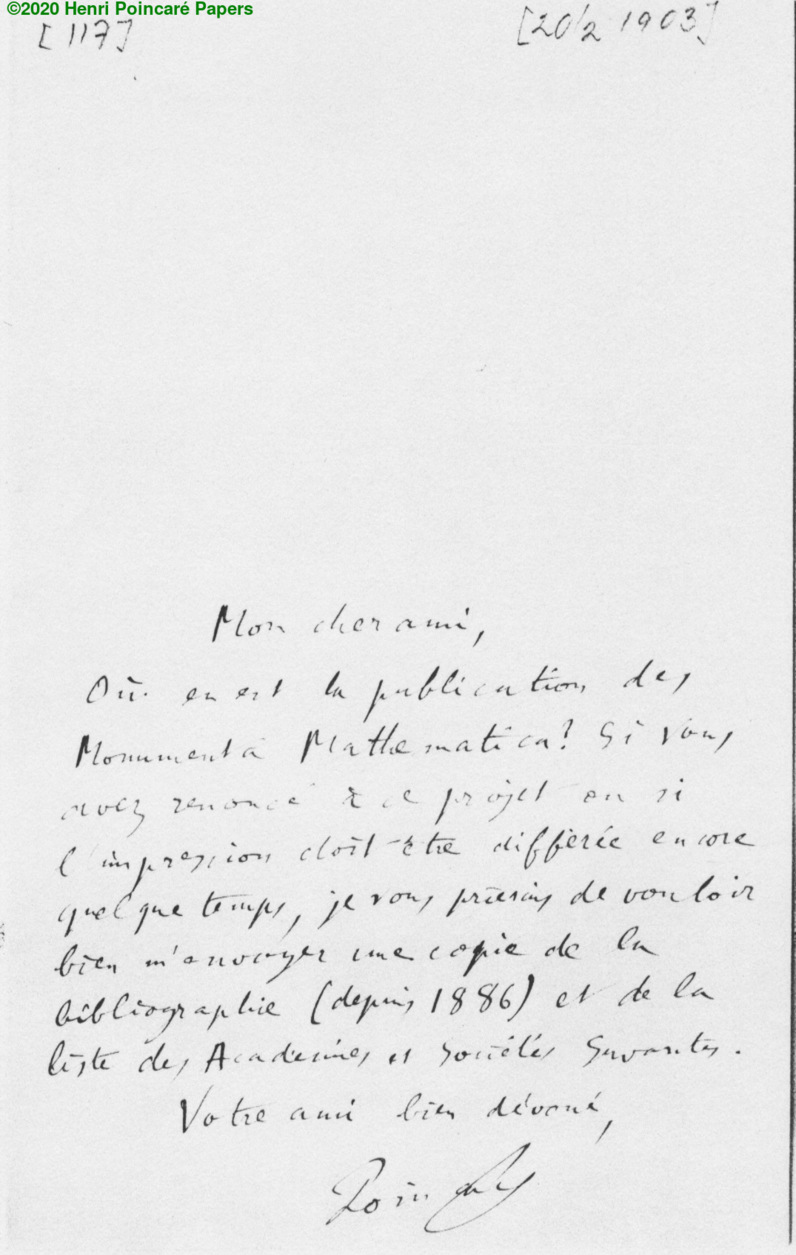 ©2020 Henri Poincaré Papers
[117]
[20/2 1903]
Mon cher ami,
Où en est la publication des
Monumenta Mathematica? Si vous
avez renoncé à ce projet ou si
l'impression doit être différée encore
quelque temps, je vous prierais de vouloir
bien m'envoyer une copie de la
bibliographie (depuis 1886) et de la
liste des Académies et Sociétés Savantes.
Votre ami bien dévoué,
Poincaré